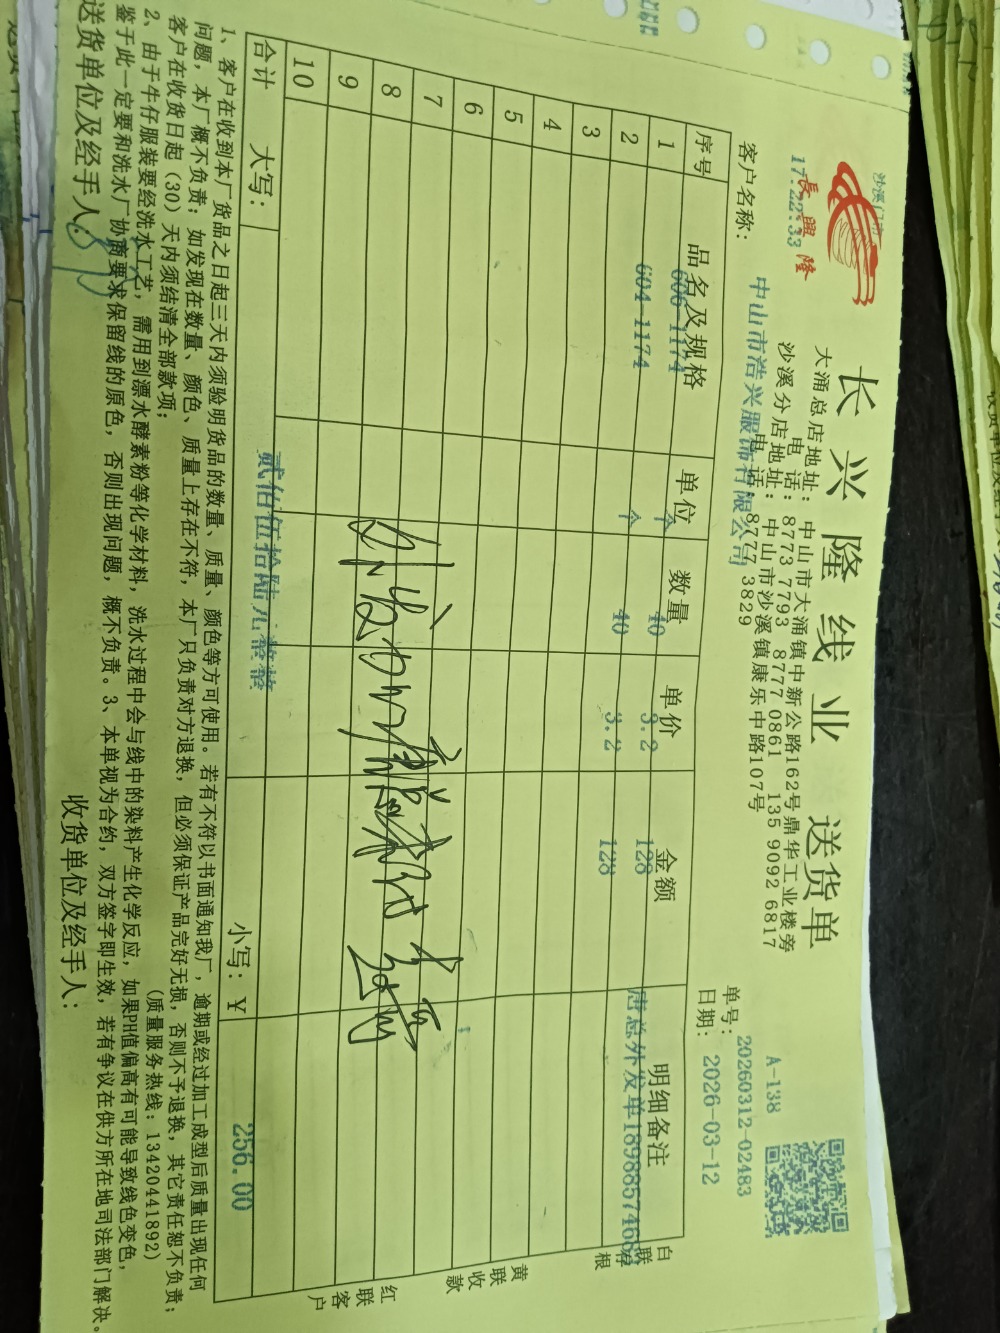 沙溪门市
17:22:33
長興隆
长兴隆线业 送货单
大涌总店地址：中山市大涌镇中新公路162号鼎华工业楼旁
电 话：8773 7793 8777 0861 135 9092 6817
沙溪分店地址：中山市沙溪镇康乐中路107号
电 话：8777 3829
A-138
单号：20260312-02483
日期：2026-03-12
客户名称：中山市浩兴服饰有限公司
序号 品名及规格 单位 数量 单价 金额 明细备注
1 606-1174 个 40 3.2 128 唐总外发单18988574668
2 604-1174 个 40 3.2 128
3
4
5
6
7
8
9
10
合计 大写：贰佰伍拾陆元整整 小写：¥ 256.00
白联存根
黄联收款
红联客户
1、客户在收到本厂货品之日起三天内须验明货品的数量、质量、颜色等方可使用。若有不符以书面通知我厂，逾期或经过加工成型后质量出现任何
问题，本厂概不负责；如发现在数量、颜色、质量上存在不符，本厂只负责对方退换，但必须保证产品完好无损，否则不予退换，其它责任恕不负责；
客户在收货日起（30）天内须结清全部款项； （质量服务热线：13420441892）
2、由于牛仔服装要经洗水工艺，需用到漂水酵素粉等化学材料，洗水过程中会与线中的染料产生化学反应，如果PH值偏高有可能导致线色变色，
鉴于此一定要和洗水厂协商要求保留线的原色，否则出现问题，概不负责。3、本单视为合约，双方签字即生效，若有争议在供方所在地司法部门解决。
送货单位及经手人： 收货单位及经手人：